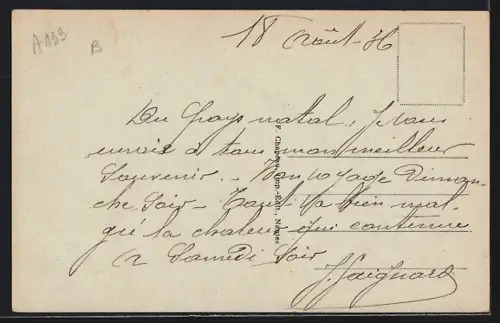 A 133
B
18 Août - 36
Du Pays natal, je vous
envoie à tous mon meilleur
Souvenir. - Bon voyage Diman-
che Soir - Tout va bien mal-
gré la chaleur qui continue
Samedi Soir
J. Gaignard
F. Chapeau, Imp.-Édit., Nantes